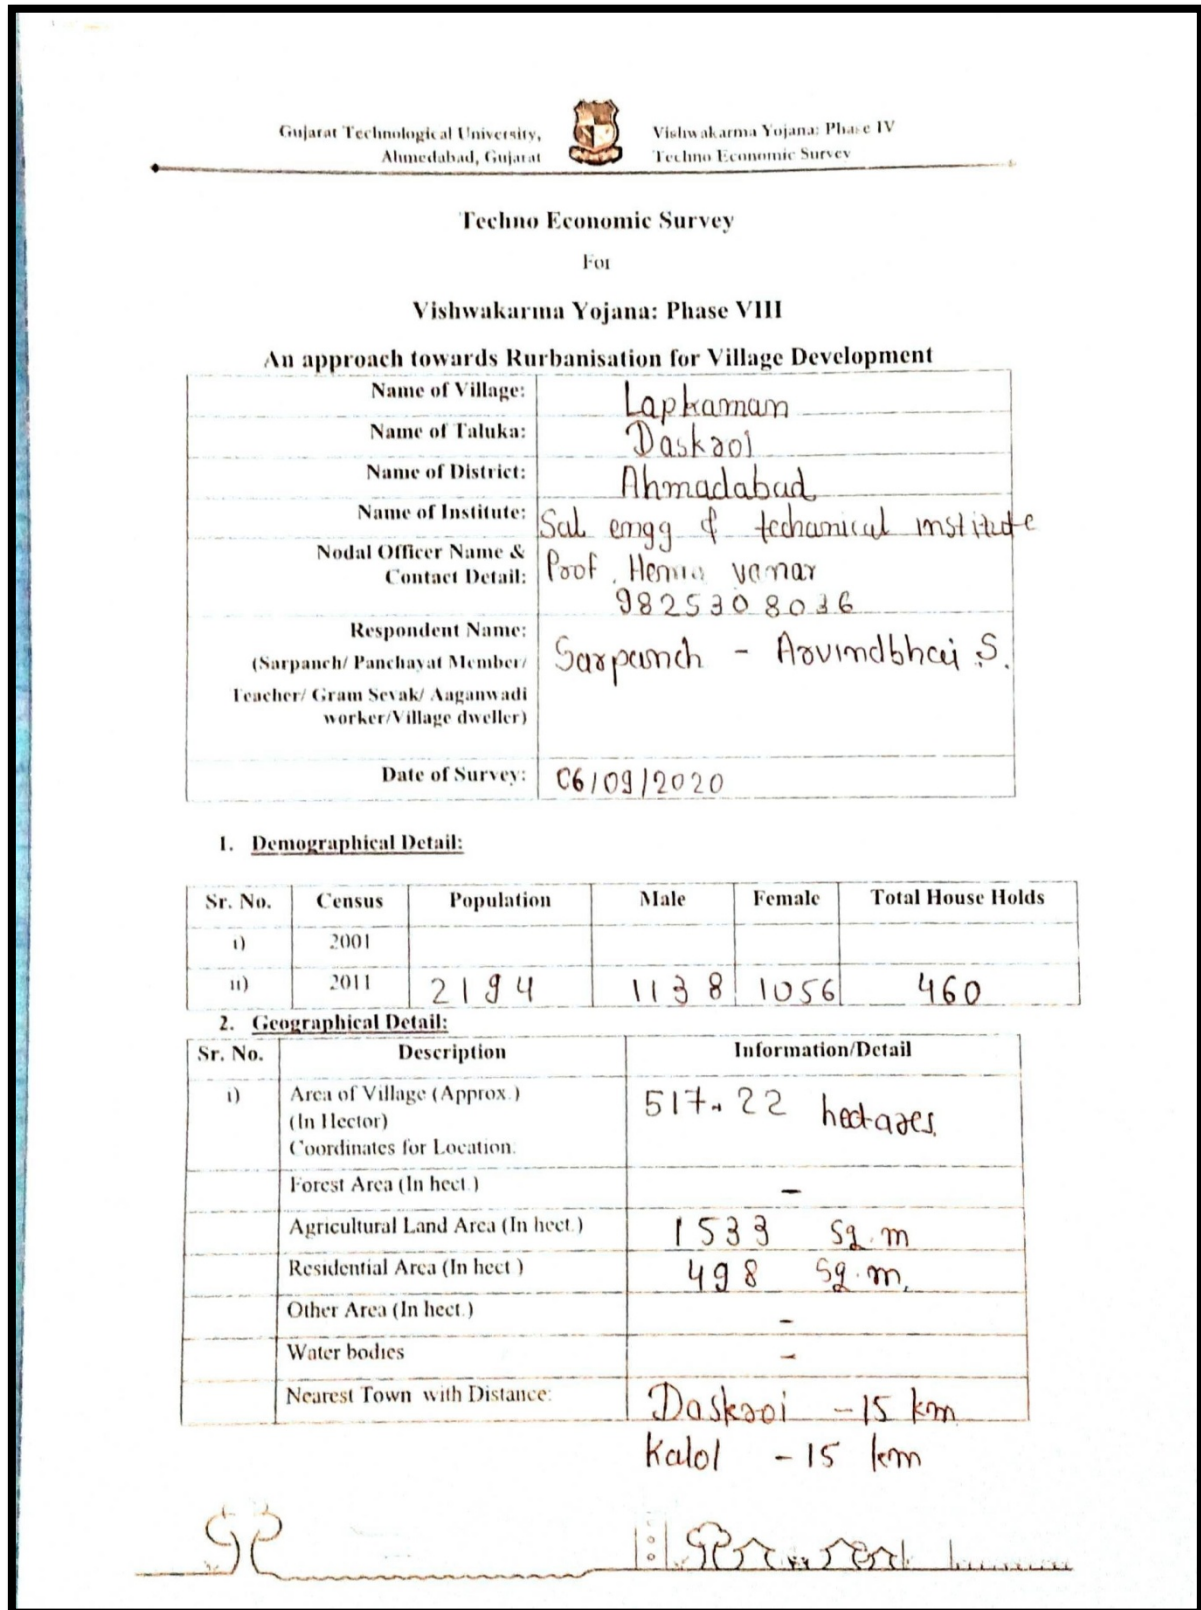 Gujarat Technological University,
Ahmedabad, Gujarat
Vishwakarma Yojana: Phase IV
Techno Economic Survey
Techno Economic Survey
For
Vishwakarma Yojana: Phase VIII
An approach towards Rurbanisation for Village Development
Name of Village: Lapkaman
Name of Taluka: Daskroi
Name of District: Ahmadabad
Name of Institute: Sal engg & techanical institute
Nodal Officer Name & Prof.
Contact Detail: 9825308036
Respondent Name: Sarpanch - Arvindbhai S.
(Sarpanch/ Panchayat Member/
Teacher/ Gram Sevak/ Aaganwadi
worker/Village dweller)
Date of Survey: 06/09/2020
1. Demographical Detail:
Sr. No. Census Population Male Female Total House Holds
i) 2001
ii) 2011 2194 1138 1056 460
2. Geographical Detail:
Sr. No. Description Information/Detail
i) Area of Village (Approx.) 517.22 hectares.
(In Hector)
Coordinates for Location:
Forest Area (In hect.) -
Agricultural Land Area (In hect.) 1533 Sq.m
Residential Area (In hect.) 498 Sq.m.
Other Area (In hect.) -
Water bodies -
Nearest Town with Distance: Daskroi - 15 km
Kalol - 15 km